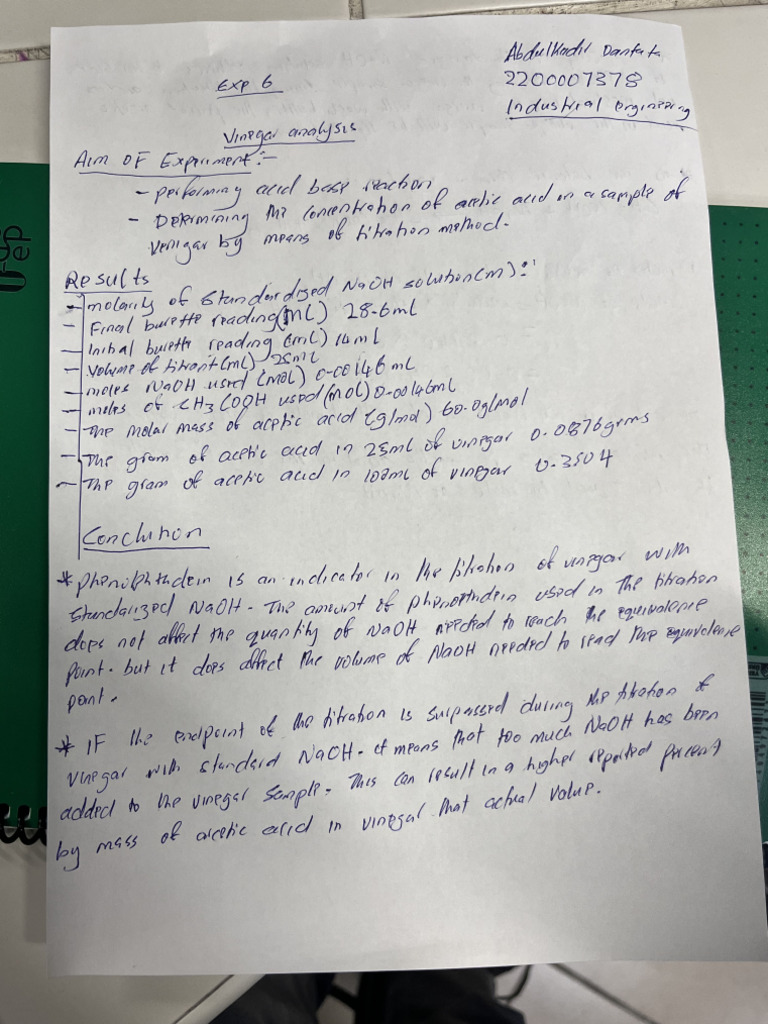 Abdulkadir Danfata
2200007378
Industrial engineering
Exp 6
Vinegar analysis
Aim OF Experiment:-
- performing acid base reaction
- Determining the concentration of acetic acid in a sample of
Venigar by means of titration method.
Results
- molarity of standardized NaOH solution(m):-
- Final burette reading(mL) 28.6ml
- Initial burette reading (mL) 14ml
- volume of titrant(mL) 25ml
- moles NaOH used (mol) 0.00146ml
- moles of CH3COOH used(mol) 0.00146ml
- The molar mass of acetic acid (g/mol) 60.0g/mol
- The gram of acetic acid in 25ml of vinegar 0.0876grms
- The gram of acetic acid in 100ml of vinegar 0.3504
Conclution
* phenolphthdein is an indicator in the titration of vinegar with
standarized NaOH - The amount of phenopthdein used in the titration
does not affect the quantity of NaOH needed to reach the equivalence
point. but it does affect the volume of NaOH needed to read the equivalence
point.
* IF the endpoint of the titration is surpassed during the titration of
vinegar with standard NaOH. it means that too much NaOH has been
added to the vinegar sample. This can result in a higher reported percent
by mass of acetic acid in vinegar that actual value.
ep